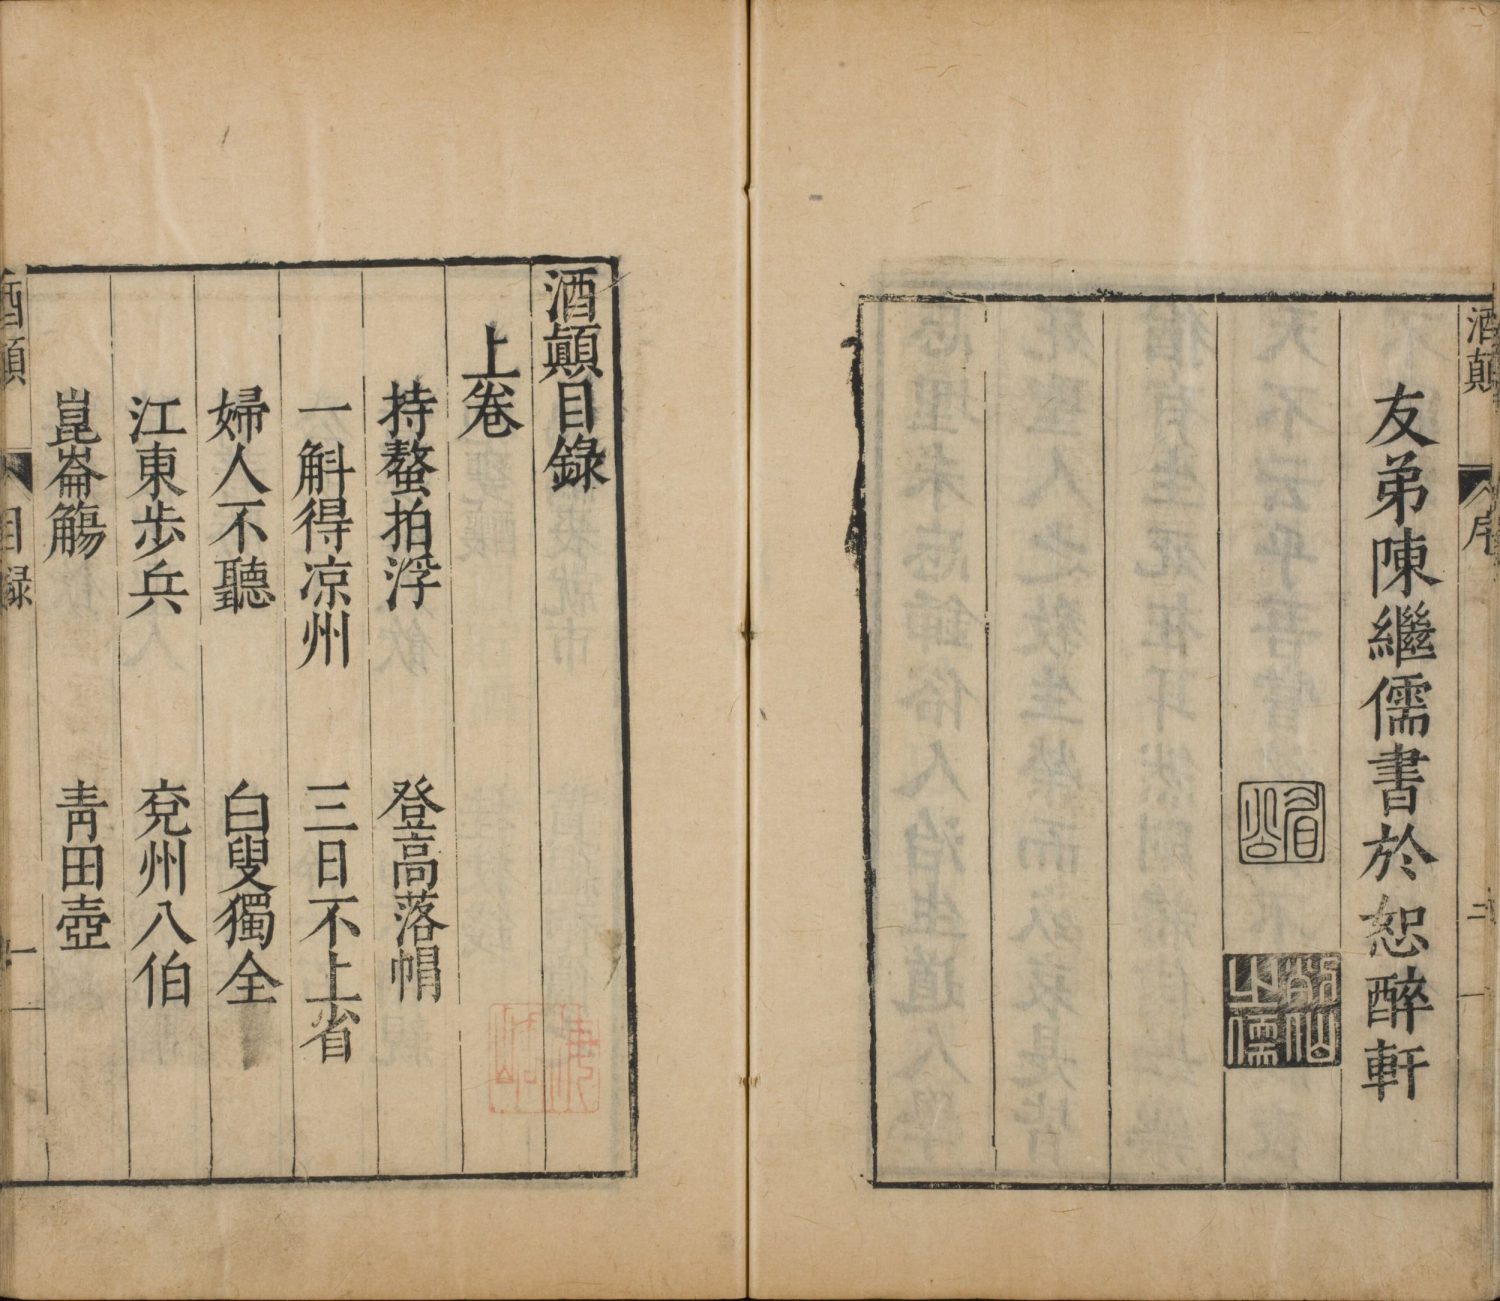 酒顛
序
二
友弟陳繼儒書於恕醉軒
眉公
酒顛目錄
上卷
持螯拍浮 登高落帽
一斛得涼州 三日不上省
婦人不聽 白叟獨全
江東步兵 兖州八伯
崑崙觴 青田壺
酒顛
目録
一